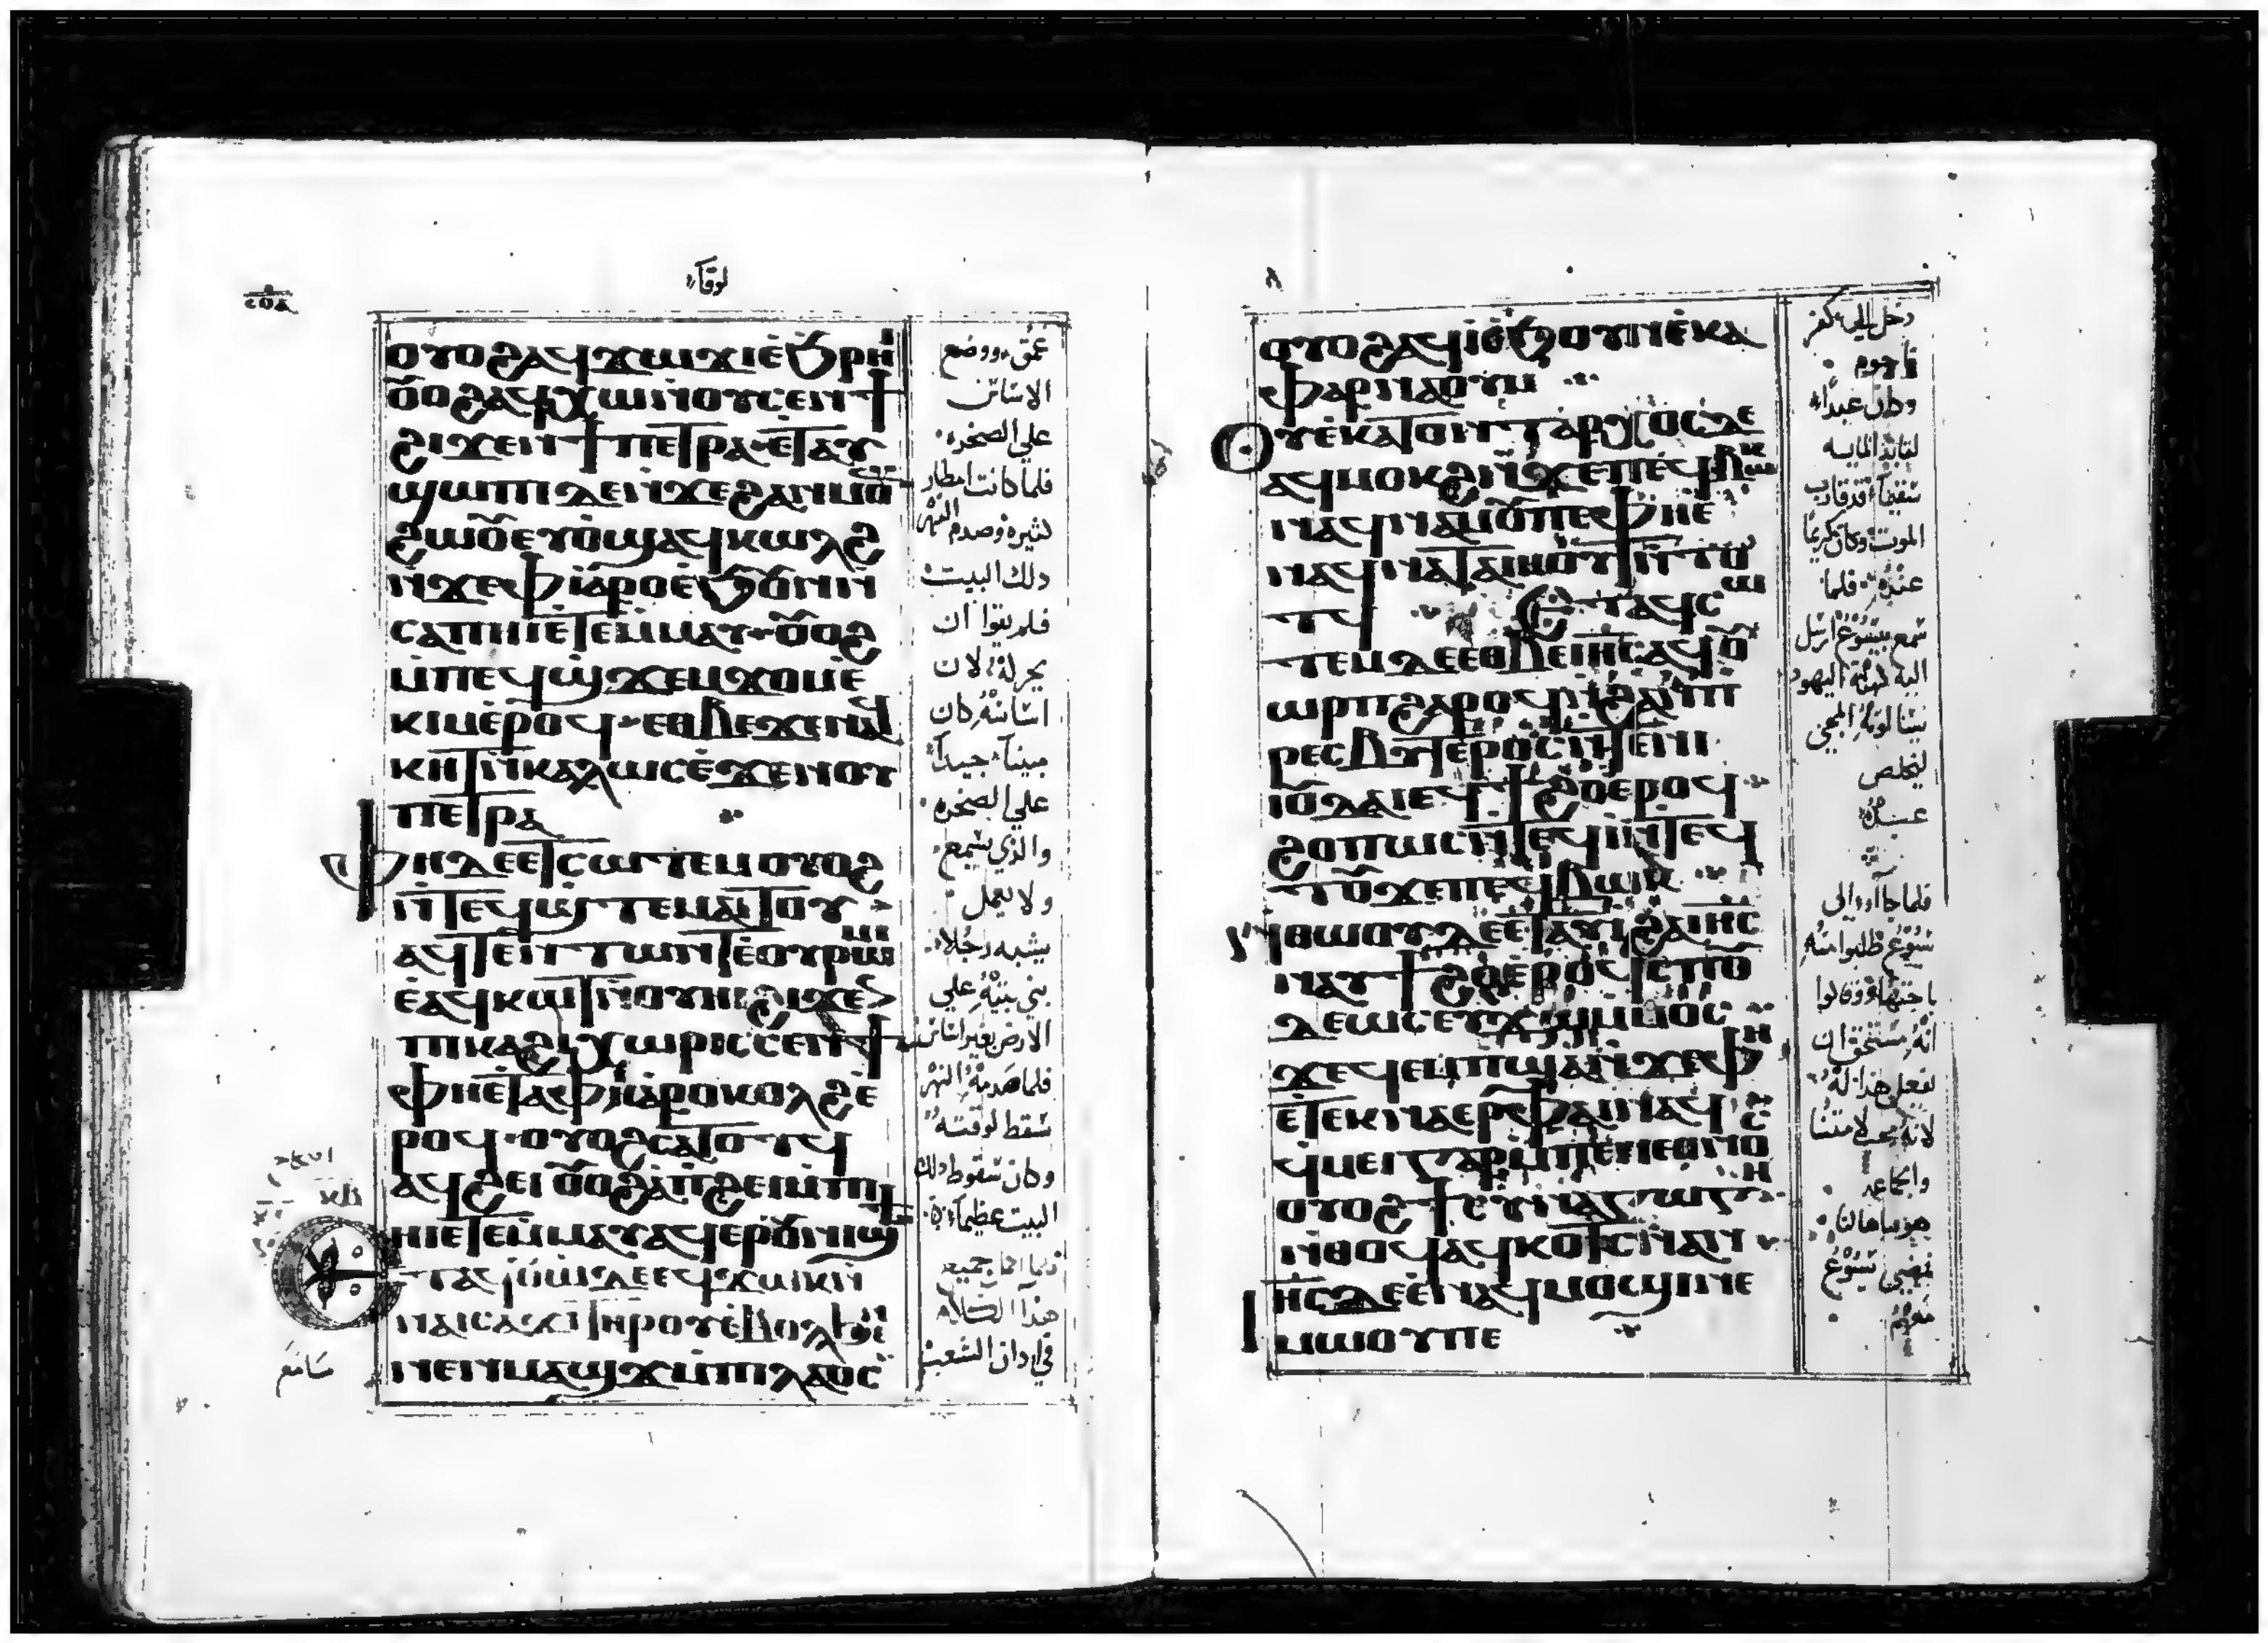 لوقا
ⲟⲩⲟϩ ⲁϥϫⲱϫⲓ ⲉϦⲣⲏⲓ
ⲟⲩⲟϩ ⲁϥⲭⲱ ⲛⲟⲩⲥⲉⲛϯ
ϩⲓϫⲉⲛ ϯⲡⲉⲧⲣⲁ ⲉⲧⲁⲩ
ϣⲱⲡⲓ ⲇⲉ ⲛϫⲉ ϩⲁⲛⲙⲟⲩ
ϩⲱⲟⲩ ⲉⲩⲟϣ ⲁϥⲕⲱⲗϩ
ⲛϫⲉ ⲫⲓⲁⲣⲟ ⲉϦⲟⲩⲛ ⲛ
ⲥⲁ ⲡⲓⲏⲓ ⲉⲧⲉⲙⲙⲁⲩ ⲟⲩⲟϩ
ⲙⲡⲉϥϣϫⲉⲙϫⲟⲙ ⲉ
ⲕⲓⲙ ⲉⲣⲟϥ ⲉⲑⲃⲉ ϫⲉ ⲛⲁϥ
ⲕⲏⲧ ⲛⲕⲁⲗⲱⲥ ⲉϫⲉⲛ ⲟⲩ
ⲡⲉⲧⲣⲁ
ⲫⲏ ⲇⲉ ⲉⲧⲥⲱⲧⲉⲙ ⲟⲩⲟϩ
ⲛⲧⲉϥϣⲧⲉⲙⲁⲓⲧⲟⲩ
ⲁϥⲧⲉⲛⲑⲱⲛⲧ ⲉⲟⲩⲣⲱⲙⲓ
ⲉⲁϥⲕⲱⲧ ⲛⲟⲩⲏⲓ ϩⲓϫⲉⲛ
ⲡⲓⲕⲁϩⲓ ⲭⲱⲣⲓⲥ ⲥⲉⲛϯ
ⲫⲏ ⲉⲧⲁ ⲫⲓⲁⲣⲟ ⲕⲟⲗϩ ⲉ
ⲣⲟϥ ⲟⲩⲟϩ ⲥⲁⲧⲟⲧϥ
ⲁϥϩⲉⲓ ⲟⲩⲟϩ ⲁ ⲡϩⲉⲓ ⲙⲡⲓ
ⲏⲓ ⲉⲧⲉⲙⲙⲁⲩ ⲁϥⲉⲣ ⲟⲩⲛⲓϣϯ
ⲛⲁⲓⲥⲁϫⲓ ⲧⲏⲣⲟⲩ ⲉⲃⲟⲗ Ϧⲉⲛ
ⲛⲉⲛⲙⲁϣϫ ⲙⲡⲓⲗⲁⲟⲥ
عمق ووضع
الاساس
علي الصخره
فلما كانت امطار
كثيره وصدم النهر
ذلك البيت
فلم يقوا ان
يحركه لان
اساسه كان
مبنيا جيدا
علي الصخره
والذي يسمع
ولا يعمل
يشبه رجلا
بني بيته علي
الارض بغير اساس
فلما صدمه النهر
سقط لوقته
وكان سقوط ذلك
البيت عظيما
هذا الكلام
في اذان الشعب
ⲟⲩⲟϩ ⲁϥⲓ ⲉϦⲟⲩⲛ ⲉⲕⲁ
ⲫⲁⲣⲛⲁⲟⲩⲙ
ⲟⲩⲉⲕⲁⲧⲟⲛⲧⲁⲣⲭⲟⲥ ⲇⲉ
ⲁϥⲙⲟⲕϩ ⲛϫⲉ ⲡⲉϥⲃⲱⲕ
ⲛⲁϥⲛⲁⲙⲟⲩ ⲡⲉ ⲫⲏ ⲉ
ⲛⲁϥⲧⲁⲓⲏⲟⲩⲧ ⲛⲧⲟ
ⲧϥ ⲉⲧⲁϥⲥⲱ
ⲧⲉⲙ ⲇⲉ ⲉⲑⲃⲉ ⲓⲏⲥ ⲁϥⲟⲩ
ⲱⲣⲡ ϩⲁⲣⲟϥ ⲛϩⲁⲛⲡ
ⲣⲉⲥⲃⲩⲧⲉⲣⲟⲥ ⲛⲧⲉ ⲛⲓ
ⲓⲟⲩⲇⲁⲓ ⲉϥϯϩⲟ ⲉⲣⲟϥ
ϩⲟⲡⲱⲥ ⲛⲧⲉϥⲓ ⲛⲧⲉϥ
ⲧⲟⲩϫⲉ ⲡⲉϥⲃⲱⲕ
ⲛⲑⲱⲟⲩ ⲇⲉ ⲉⲧⲁⲩⲓ ϩⲁ ⲓⲏⲥ
ⲛⲁⲩϯϩⲟ ⲉⲣⲟϥ ⲥⲡⲟⲩ
ⲇⲉⲱⲥ ⲉⲩϫⲱ ⲙⲙⲟⲥ
ϫⲉ ϥⲉⲙⲡϣⲁ ⲛϫⲉ ⲫⲏ
ⲉⲧⲉⲕⲛⲁⲉⲣ ⲫⲁⲓ ⲛⲁϥ
ϥⲙⲉⲓ ⲅⲁⲣ ⲙⲡⲉⲛⲉⲑⲛⲟⲥ
ⲟⲩⲟϩ ϯⲥⲩⲛⲁⲅⲱⲅⲏ
ⲛⲑⲟϥ ⲁϥⲕⲟⲧⲥ ⲛⲁⲛ
ⲓⲏⲥ ⲇⲉ ⲛⲁϥⲙⲟϣⲓ ⲛⲉ
ⲙⲱⲟⲩ ⲡⲉ
دخل الي كفر
ناحوم
وكان عبدا
لقايد المايه
الموت وكان كريما
عنده فلما
سمع بيسوع ارسل
اليه كهنة اليهود
ليخلص
عبده
فلما جاآ والي
يسوع طلبوا منه
باجتهاد وقالوا
انه مستحق ان
يفعل هذا له
لانه يحب لامتنا
فمضي يسوع
معهم